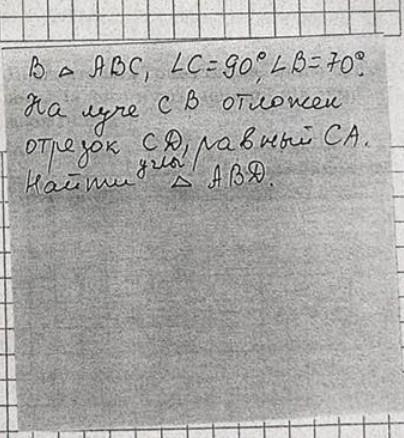 В △ ABC, ∠C=90°, ∠B=70°.
На луче CB отложен
отрезок CD, равный CA.
Найти углы △ ABD.